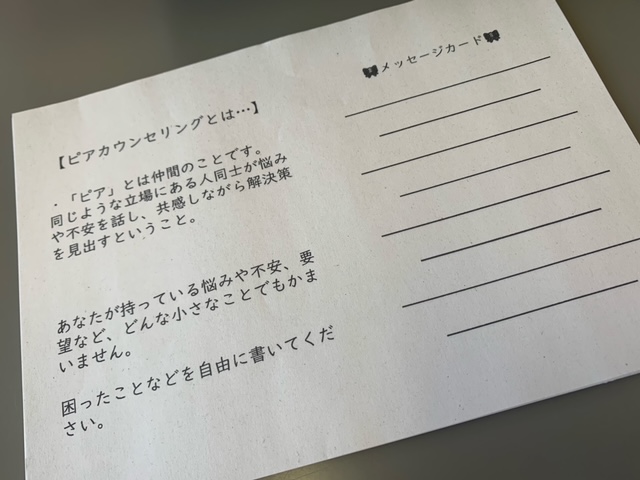 【ピアカウンセリングとは…】
・「ピア」とは仲間のことです。
同じような立場にある人同士が悩み
や不安を話し、共感しながら解決策
を見出すということ。
あなたが持っている悩みや不安、要
望など、どんな小さなことでもかま
いません。
困ったことなどを自由に書いてくだ
さい。
メッセージカード